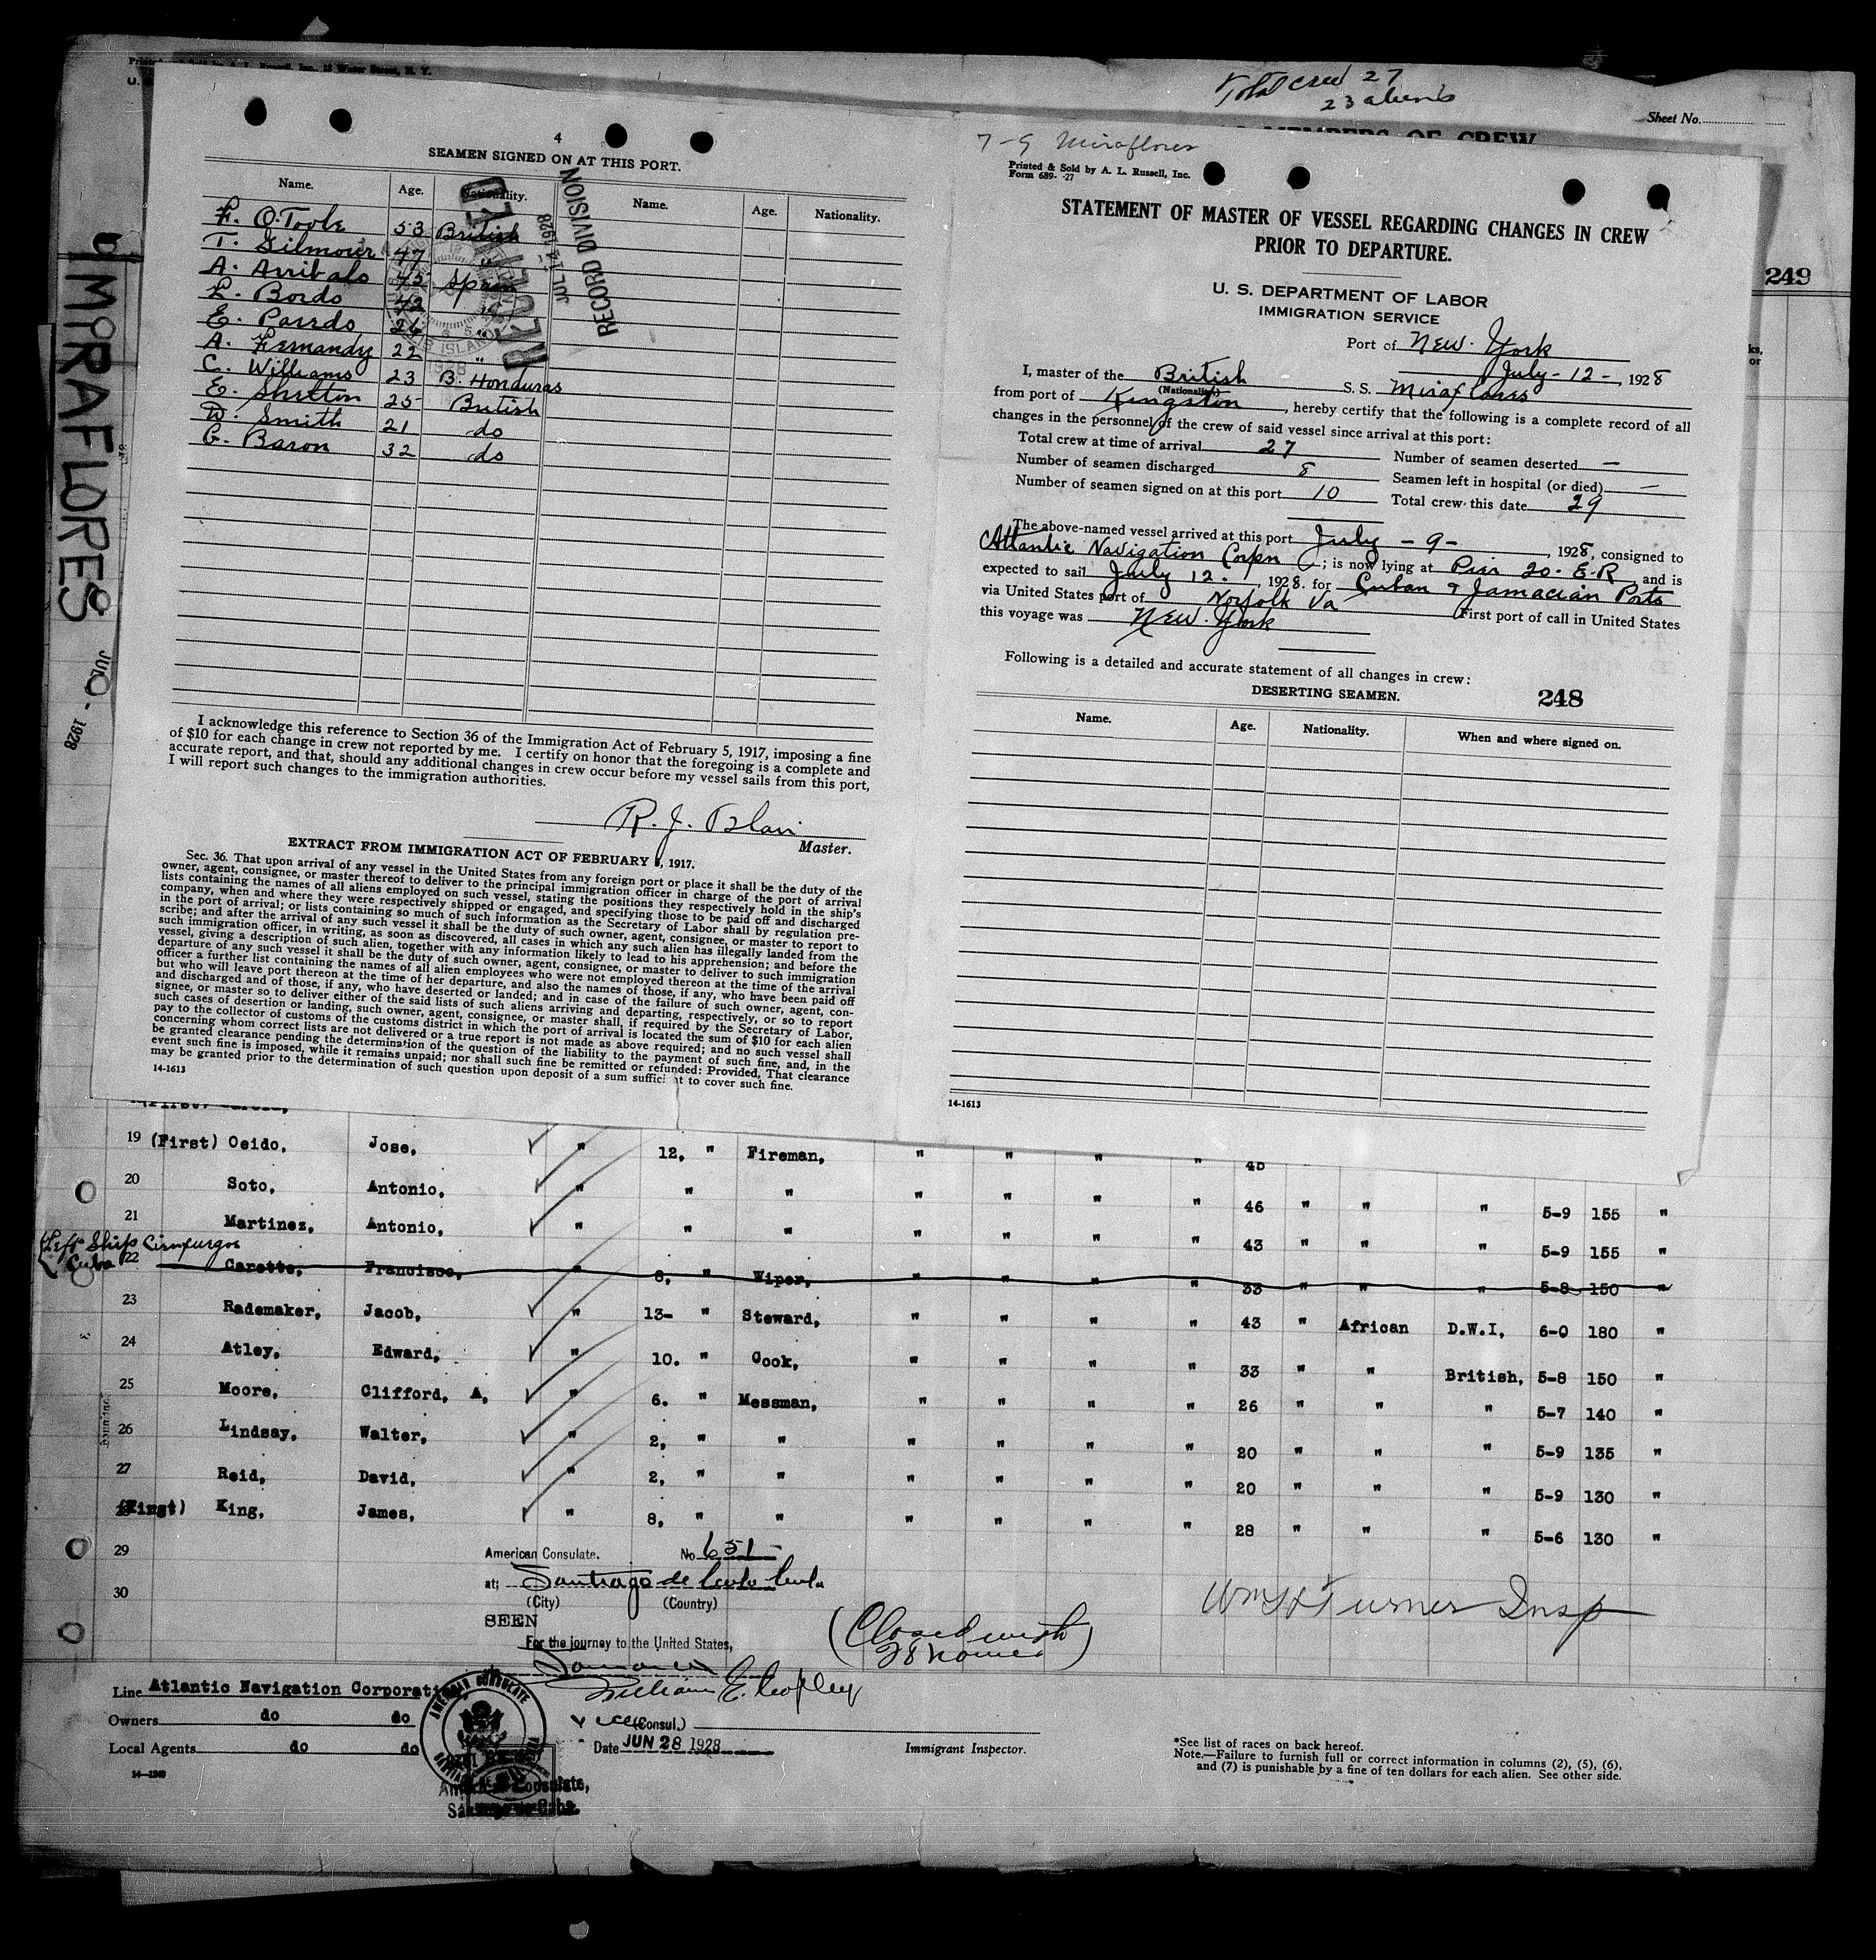 Total crew 27
23 aliens
Sheet No.
MEMBERS OF CREW
249
MIRAFLORES
JUL - 1928
4
SEAMEN SIGNED ON AT THIS PORT.
Name. Age. Nationality. Name. Age. Nationality.
F. O.Toole 53 British
T. Gilmour 47 "
A. Arribalo 45 Spain
L. Bordo 42 "
E. Parrdo 26 "
A. Fernandy 22 "
C. Williams 23 B. Honduras
E. Shelton 25 British
W. Smith 21 do
G. Baron 32 do
RECEIVED
JUL 14 1928
RECORD DIVISION
I acknowledge this reference to Section 36 of the Immigration Act of February 5, 1917, imposing a fine
of $10 for each change in crew not reported by me. I certify on honor that the foregoing is a complete and
accurate report, and that, should any additional changes in crew occur before my vessel sails from this port,
I will report such changes to the immigration authorities.
R. J. Blair
Master.
EXTRACT FROM IMMIGRATION ACT OF FEBRUARY 5, 1917.
Sec. 36. That upon arrival of any vessel in the United States from any foreign port or place it shall be the duty of the
owner, agent, consignee, or master thereof to deliver to the principal immigration officer in charge of the port of arrival
lists containing the names of all aliens employed on such vessel, stating the positions they respectively hold in the ship's
company, when and where they were respectively shipped or engaged, and specifying those to be paid off and discharged
in the port of arrival; or lists containing so much of such information as the Secretary of Labor shall by regulation pre-
scribe; and after the arrival of any such vessel it shall be the duty of such owner, agent, consignee, or master to report to
such immigration officer, in writing, as soon as discovered, all cases in which any such alien has illegally landed from the
vessel, giving a description of such alien, together with any information likely to lead to his apprehension; and before the
departure of any such vessel it shall be the duty of such owner, agent, consignee, or master to deliver to such immigration
officer a further list containing the names of all alien employees who were not employed thereon at the time of the arrival
but who will leave port thereon at the time of her departure, and also the names of those, if any, who have been paid off
and discharged and of those, if any, who have deserted or landed; and in case of the failure of such owner, agent, con-
signee, or master so to deliver either of the said lists of such aliens arriving and departing, respectively, or so to report
such cases of desertion or landing, such owner, agent, consignee, or master shall, if required by the Secretary of Labor,
pay to the collector of customs of the customs district in which the port of arrival is located the sum of $10 for each alien
concerning whom correct lists are not delivered or a true report is not made as above required; and no such vessel shall
be granted clearance pending the determination of the question of the liability to the payment of such fine, and, in the
event such fine is imposed, while it remains unpaid; nor shall such fine be remitted or refunded: Provided, That clearance
may be granted prior to the determination of such question upon deposit of a sum sufficient to cover such fine.
14-1613
7-9 Miraflores
Printed & Sold by A. L. Russell, Inc.
Form 689- -27
STATEMENT OF MASTER OF VESSEL REGARDING CHANGES IN CREW
PRIOR TO DEPARTURE.
U. S. DEPARTMENT OF LABOR
IMMIGRATION SERVICE
Port of New York
July-12-, 1928
I, master of the British S. S. Miraflores
(Nationality)
from port of Kingston, hereby certify that the following is a complete record of all
changes in the personnel of the crew of said vessel since arrival at this port:
Total crew at time of arrival 27 Number of seamen deserted —
Number of seamen discharged 8 Seamen left in hospital (or died) —
Number of seamen signed on at this port 10 Total crew this date 29
The above-named vessel arrived at this port July -9-, 1928, consigned to
Atlantic Navigation Corpn; is now lying at Pier 20. E.R and is
expected to sail July 12., 1928. for Cuban & Jamacian Ports
via United States port of Norfolk Va First port of call in United States
this voyage was New York
Following is a detailed and accurate statement of all changes in crew:
DESERTING SEAMEN. 248
Name. Age. Nationality. When and where signed on.
14-1613
19 (First) Oeido, Jose, " 12, " Fireman, " " " " 45
20 Soto, Antonio, " " " " " " " 46 " " " 5-9 155 "
21 Martinez, Antonio, " " " " " " " 43 " " " 5-9 155 "
(Left Ship Cienfuegos
Cuba
22 Carette, Francisco, " 8, " Wiper, " " " " 33 " " " 5-8 150 "
23 Rademaker, Jacob, " 13- " Steward, " " " " 43 " African D.W.I, 6-0 180 "
24 Atley, Edward, " 10. " Cook, " " " " 33 " " British, 5-8 150 "
25 Moore, Clifford, A, " 6. " Messman, " " " " 26 " " " 5-7 140 "
26 Lindsay, Walter, " 2, " " " " " " 20 " " " 5-9 135 "
27 Reid, David, " 2, " " " " " " 20 " " " 5-9 130 "
(First) King, James, " 8, " " " " " " 28 " " " 5-6 130 "
29
30
American Consulate. No 651
at; Santiago de Cuba Cuba
(City) (Country)
SEEN
For the journey to the United States,
(Closed with
28 names)
Wm H Turner Insp
William E. Copley
Vice (Consul.)
Date JUN 28 1928
Line Atlantic Navigation Corporation,
Owners do do
Local Agents do do
AMERICAN CONSULATE
American Consulate,
Immigrant Inspector.
*See list of races on back hereof.
Note.—Failure to furnish full or correct information in columns (2), (5), (6),
and (7) is punishable by a fine of ten dollars for each alien. See other side.